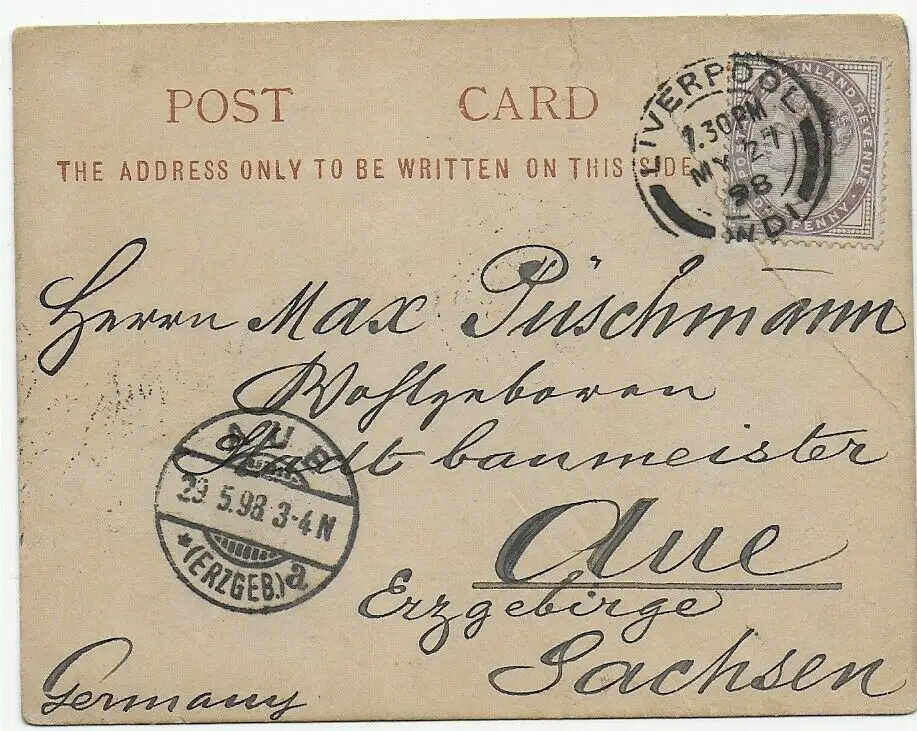 POST CARD
THE ADDRESS ONLY TO BE WRITTEN ON THIS SIDE
LIVERPOOL
7.30PM
MY 27
98
INLAND REVENUE
PENNY
Herrn Max Püschmann
Wohlgeboren
Stadtbaumeister
Aue
Erzgebirge
Sachsen
Germany
AUE
29.5.98.3-4N
*(ERZGEB.)a